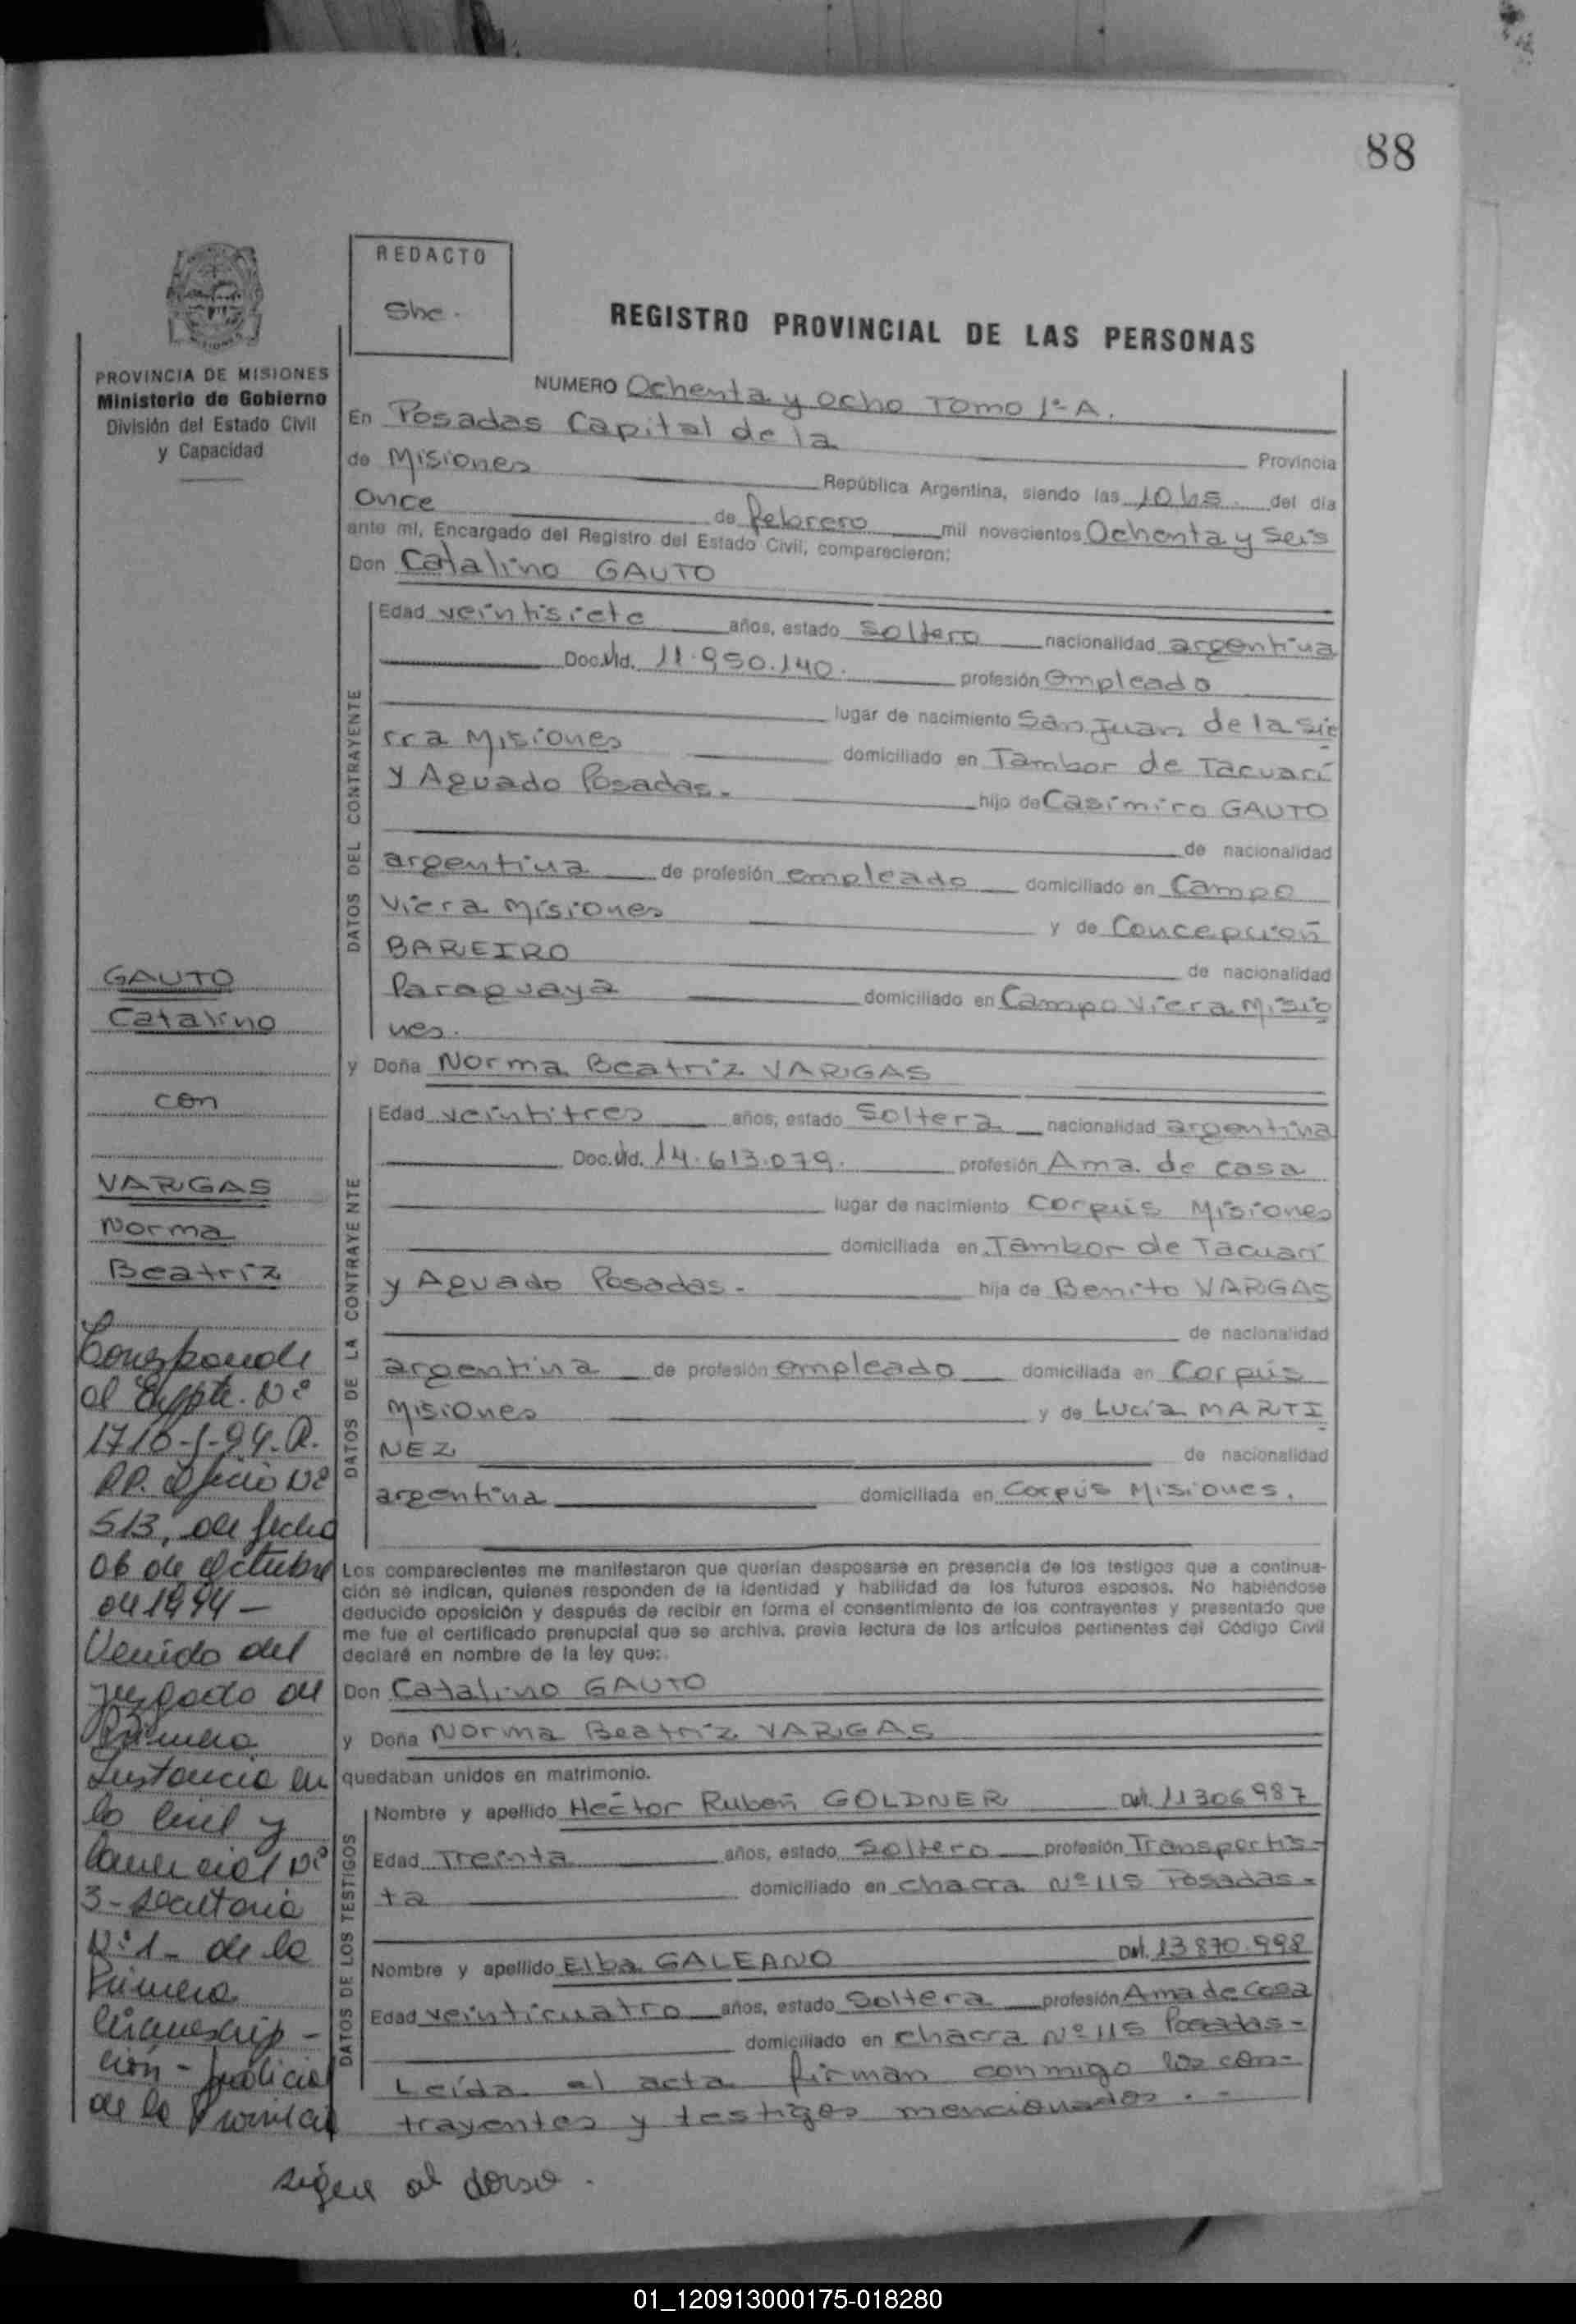 88
REDACTO
Sbc.
REGISTRO PROVINCIAL DE LAS PERSONAS
PROVINCIA DE MISIONES
Ministerio de Gobierno
División del Estado Civil
y Capacidad
NUMERO Ochenta y ocho Tomo 1º A.
En Posadas Capital de la Provincia
de Misiones República Argentina, siendo las 10 hs. del día
Once de Febrero mil novecientos Ochenta y seis
ante mí, Encargado del Registro del Estado Civil, comparecieron:
Don Catalino GAUTO
DATOS DEL CONTRAYENTE
Edad veintisiete años, estado Soltero nacionalidad argentina
Doc. Id. 11.950.140. profesión empleado
lugar de nacimiento San Juan de la Sie
rra Misiones domiciliado en Tambor de Tacuarí
y Aguado Posadas. hijo de Casimiro GAUTO
de nacionalidad
argentina de profesión empleado domiciliado en Campo
Viera Misiones y de Concepción
BAREIRO de nacionalidad
Paraguaya domiciliado en Campo Viera Misio
nes.
y Doña Norma Beatriz VARGAS
DATOS DE LA CONTRAYENTE
Edad veintitres años, estado Soltera nacionalidad argentina
Doc. Id. 14.613.079. profesión Ama de casa
lugar de nacimiento Corpus Misiones
domiciliada en Tambor de Tacuarí
y Aguado Posadas. hija de Benito VARGAS
de nacionalidad
argentina de profesión empleado domiciliada en Corpus
Misiones y de Lucía MARTI
NEZ de nacionalidad
argentina domiciliada en Corpus Misiones.
Los comparecientes me manifestaron que querían desposarse en presencia de los testigos que a continua-
ción se indican, quienes responden de la identidad y habilidad de los futuros esposos. No habiéndose
deducido oposición y después de recibir en forma el consentimiento de los contrayentes y presentado que
me fue el certificado prenupcial que se archiva, previa lectura de los artículos pertinentes del Código Civil
declaré en nombre de la ley que:
Don Catalino GAUTO
y Doña Norma Beatriz VARGAS
quedaban unidos en matrimonio.
DATOS DE LOS TESTIGOS
Nombre y apellido Héctor Rubén GOLDNER DNI. 11306987
Edad Treinta años, estado Soltero profesión Transportis-
ta domiciliado en chacra Nº 115 Posadas-
Nombre y apellido Elba GALEANO DNI. 13870.998
Edad veinticuatro años, estado Soltera profesión Ama de Casa
domiciliado en chacra Nº 115 Posadas-
Leída el acta firman conmigo los con-
trayentes y testigos mencionados.-
GAUTO
Catalino
con
VARGAS
Norma
Beatriz
Corresponde
al Expte. Nº
1716-J-94. R.
P.P. Oficio Nº
513, de fecha
06 de Octubre
de 1994-
Venido del
Juzgado de
Primera
Instancia en
lo Civil y
Comercial Nº
3- Secretaria
Nº 1- de la
Primera
Circunscrip-
ción- Judicial
de la Provincia
sigue al dorso.
01_120913000175-018280